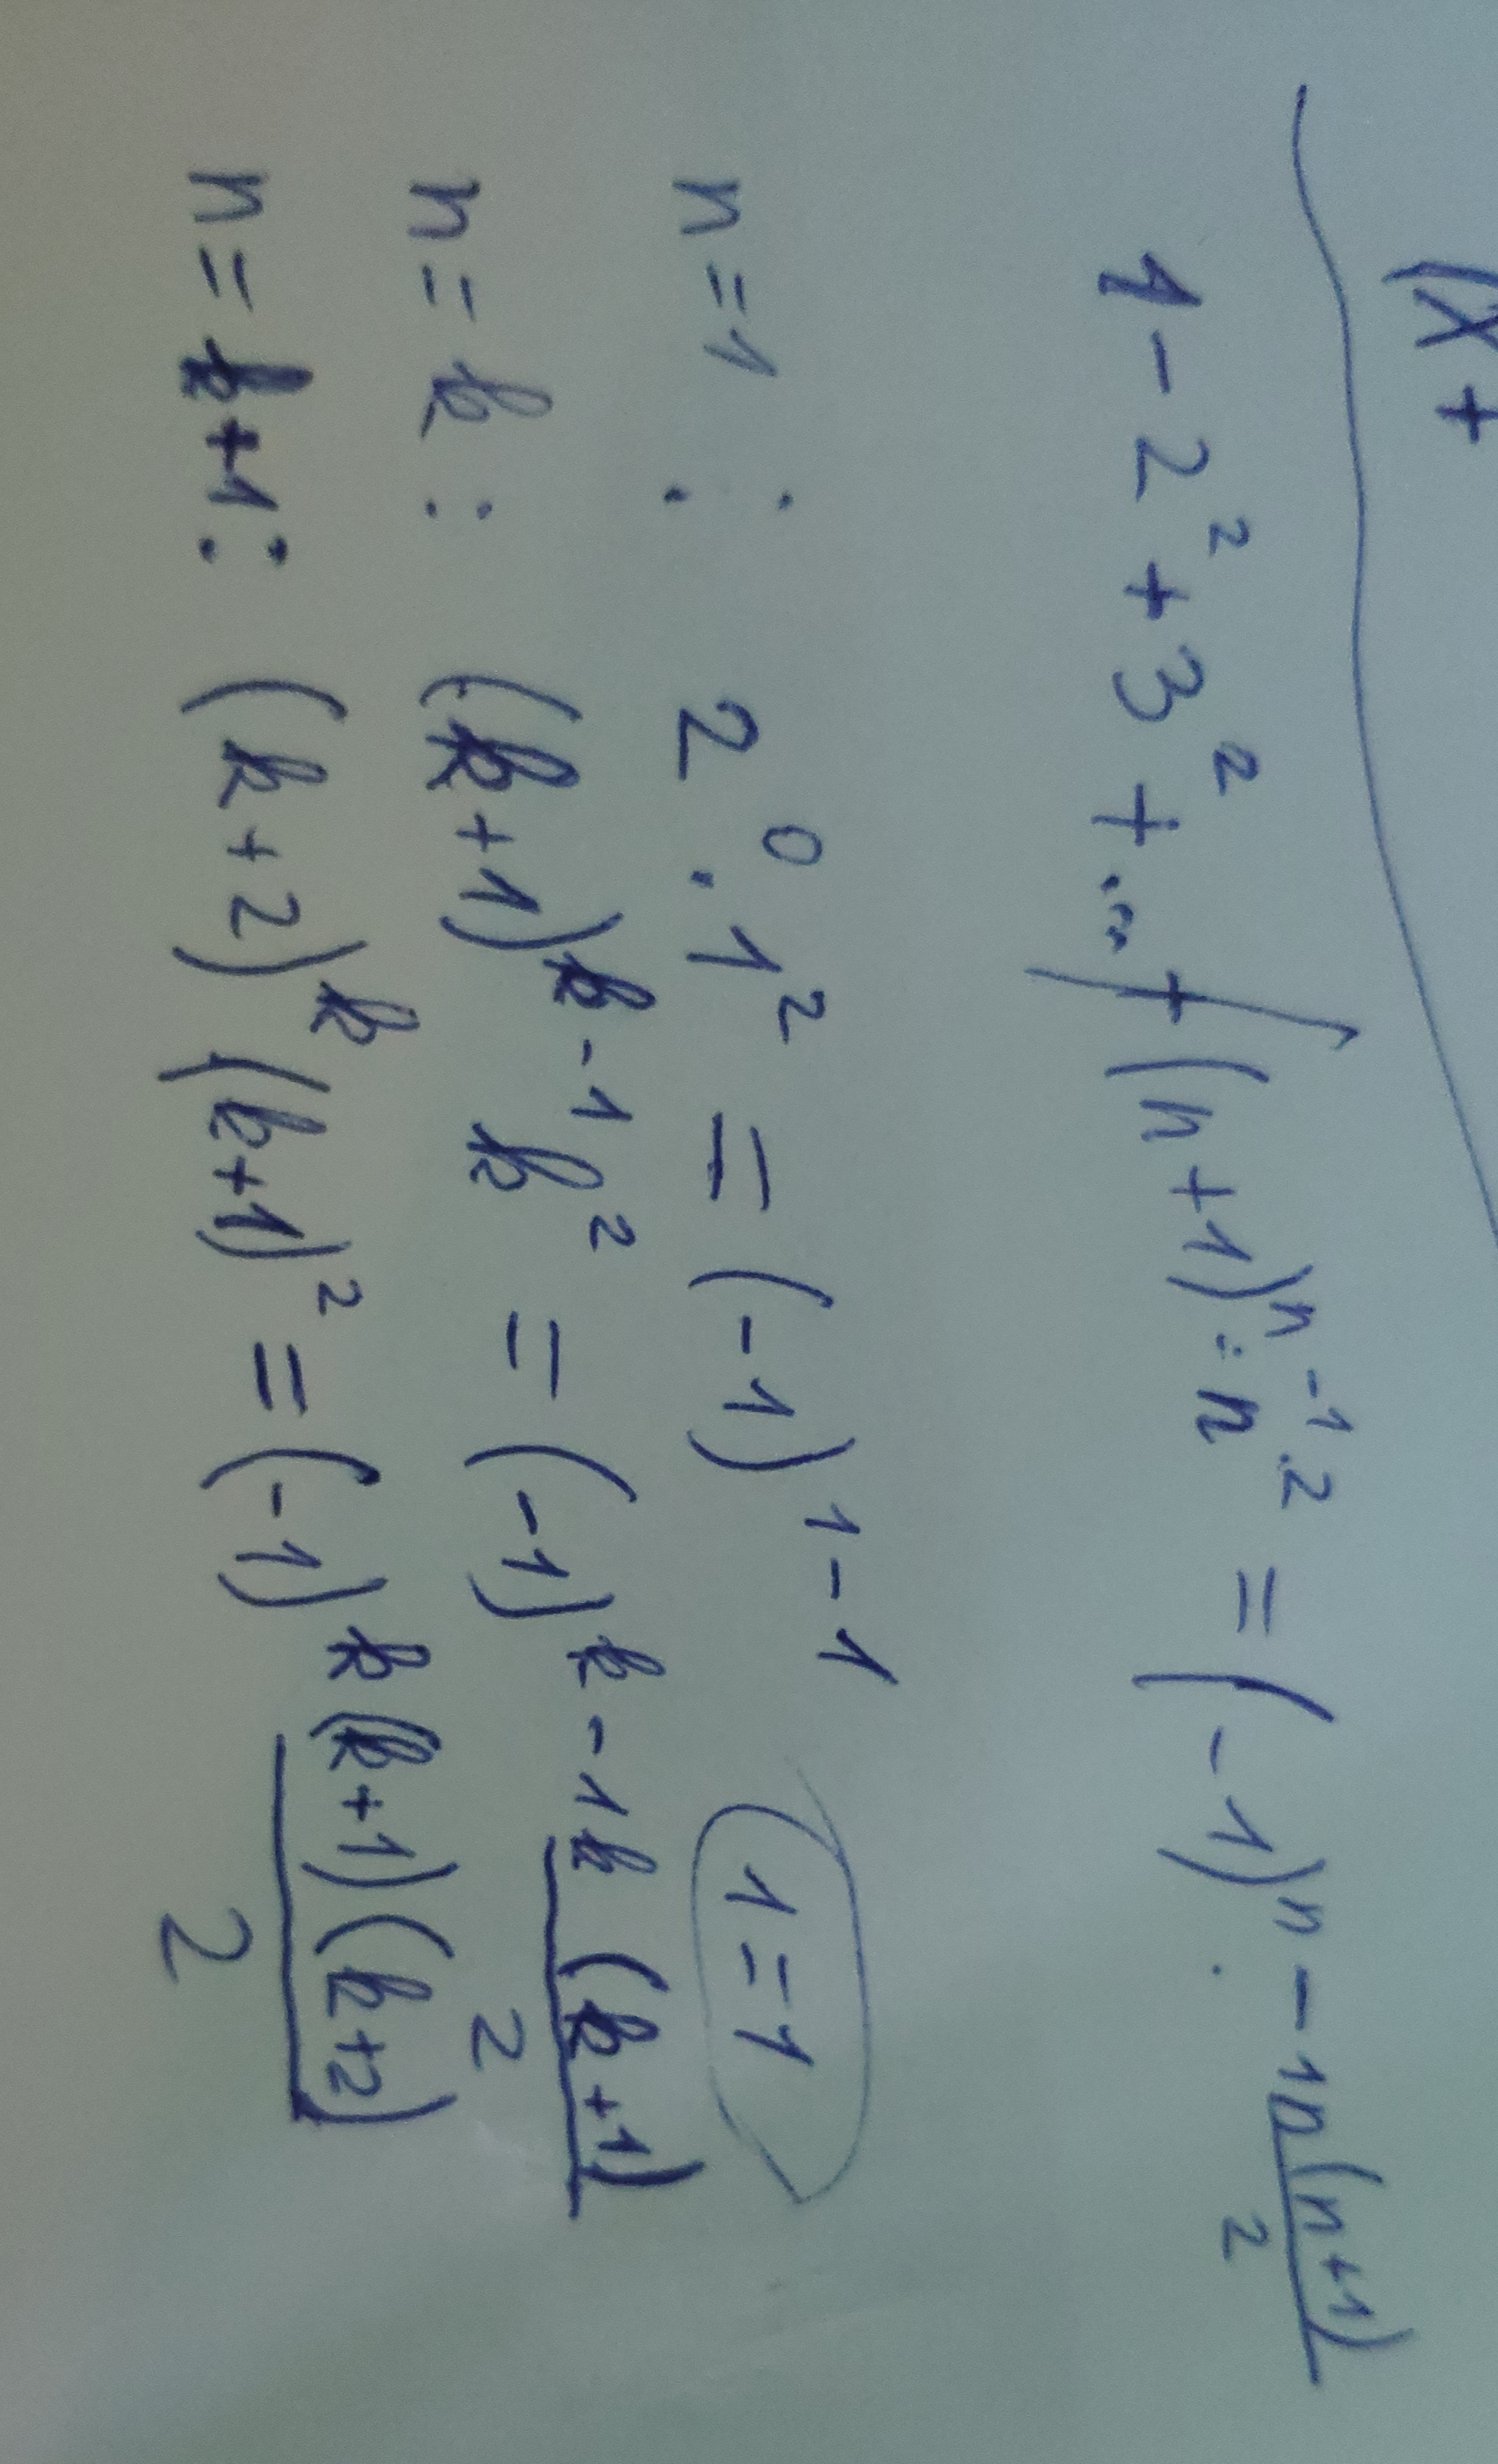 (x+
1 - 2² + 3² + ... + (n+1)ⁿ⁻¹ · n² = (-1)ⁿ⁻¹ n(n+1)/2
n=1 : 2⁰ · 1² = (-1)¹⁻¹ 1=1
n=k : (k+1)ᵏ⁻¹ k² = (-1)ᵏ⁻¹ k(k+1)/2
n=k+1: (k+2)ᵏ (k+1)² = (-1)ᵏ (k+1)(k+2)/2